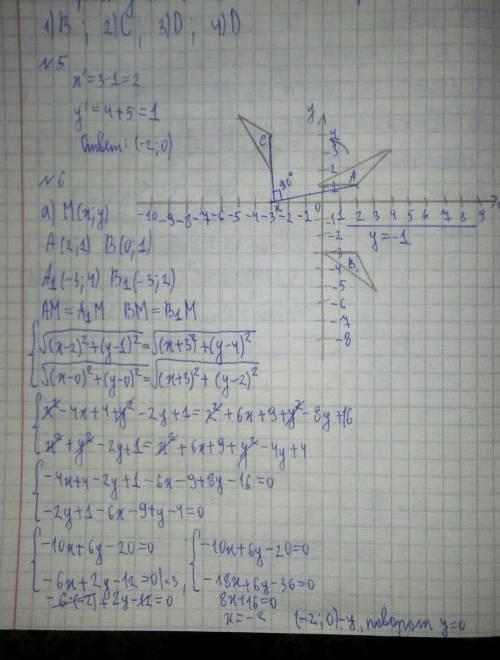 1) B ; 2) C ; 3) D ; 4) D
№5
x' = 3-1 = 2
y' = 4+5 = 1
Ответ: (-2; 0)
№6
а) M(x; y)
A(2; 1) B(0; 1)
A₁(-3; 4) B₁(-3; 2)
AM = A₁M BM = B₁M
√(x-2)²+(y-1)² = √(x+3)²+(y-4)²
√(x-0)²+(y-0)² = √(x+3)²+(y-2)²
x²-4x+4+y²-2y+1 = x²+6x+9+y²-8y+16
x²+y²-2y+1 = x²+6x+9+y²-4y+4
-4x+4-2y+1-6x-9+8y-16=0
-2y+1-6x-9+y-4=0
-10x+6y-20=0
-6x+2y-12=0|·3,
-6·(-2)+2y-12=0
-10x+6y-20=0
-18x+6y-36=0
8x+16=0
x=-2
(-2; 0)-y, поворот y=0
y
4
3
2
1
C
90°
A
-10 -9 -8 -7 -6 -5 -4 -3 -2 -1 0 1 2 3 4 5 6 7 8 9
y=-1
-1
-2
-3
B
-4
-5
-6
-7
-8